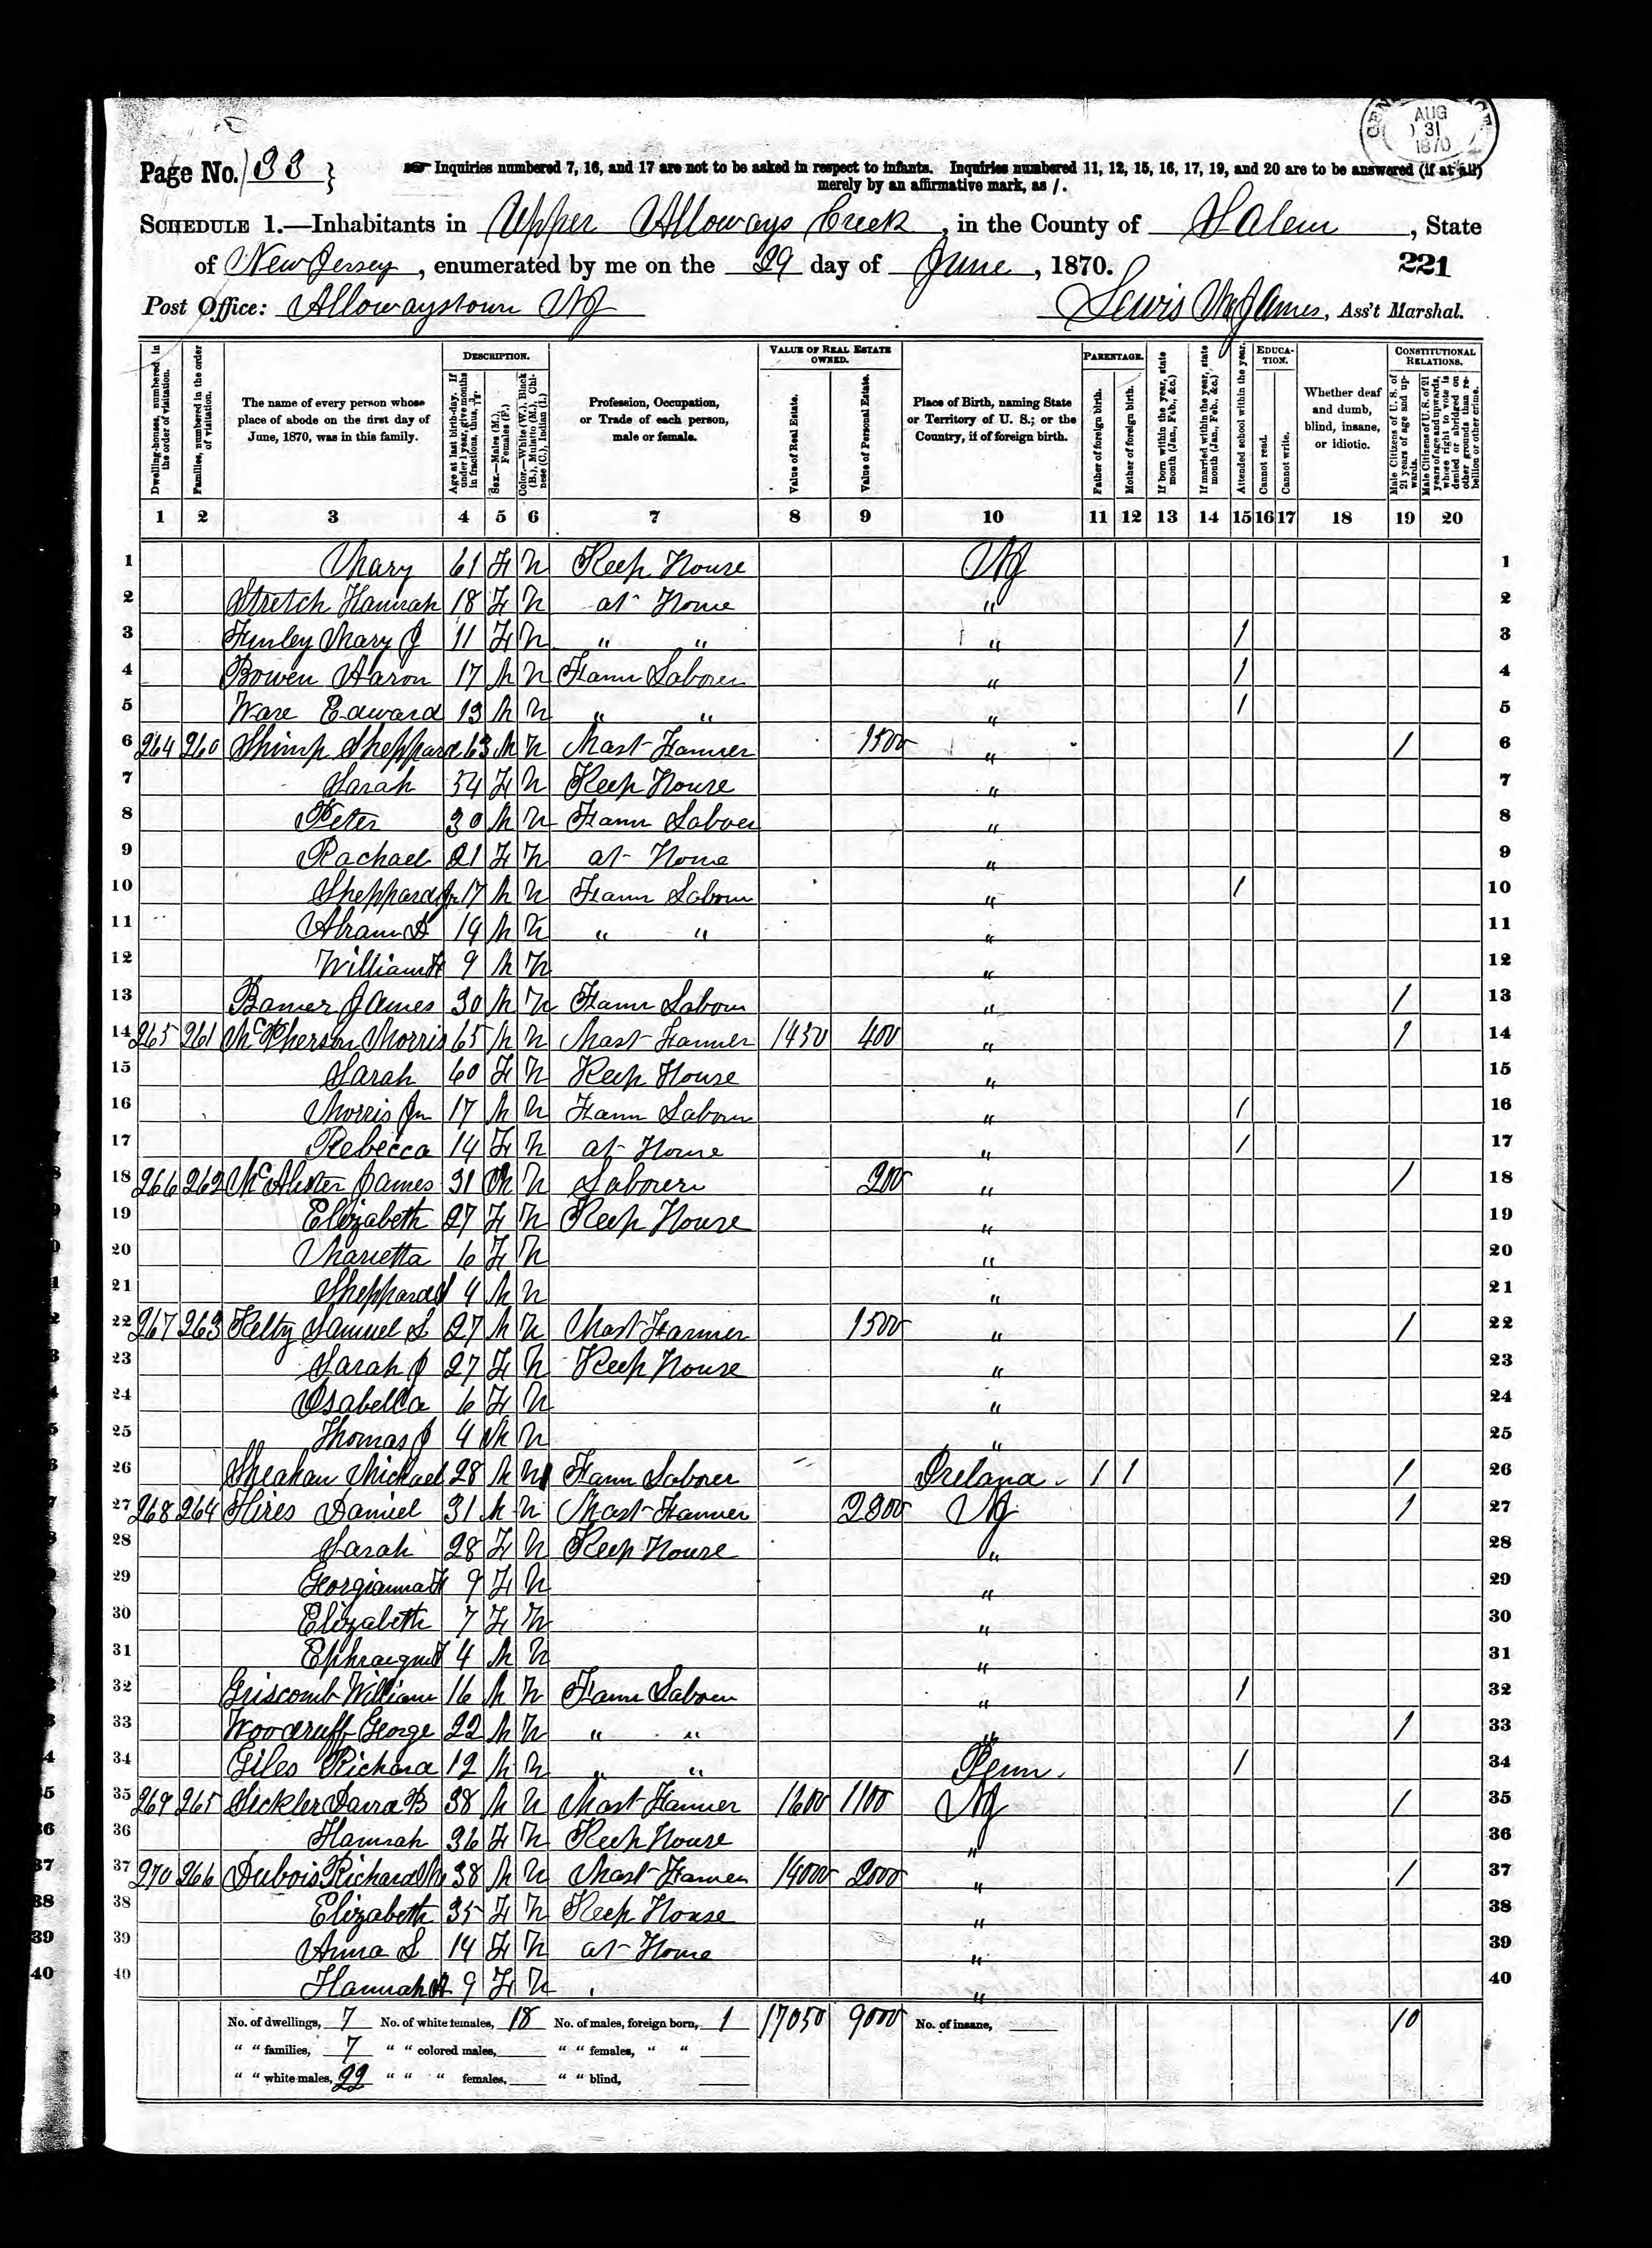 AUG
31
1870
Page No. 33 } Inquiries numbered 7, 16, and 17 are not to be asked in respect to infants. Inquiries numbered 11, 12, 15, 16, 17, 19, and 20 are to be answered (if at all)
merely by an affirmative mark, as /.
SCHEDULE 1.—Inhabitants in Upper Alloways Creek, in the County of Salem, State
of New Jersey, enumerated by me on the 29 day of June, 1870. 221
Post Office: Allowaystown NJ Lewis James, Ass't Marshal.
Dwelling-houses, numbered in the order of visitation.
Families, numbered in the order of visitation.
The name of every person whose place of abode on the first day of June, 1870, was in this family.
DESCRIPTION.
Age at last birth-day. If under 1 year, give months in fractions, thus,
Sex.—Males (M.), Females (F.)
Color.—White (W.), Black (B.), Mulatto (M.), Chinese (C.), Indian (I.)
Profession, Occupation, or Trade of each person, male or female.
VALUE OF REAL ESTATE OWNED.
Value of Real Estate.
Value of Personal Estate.
Place of Birth, naming State or Territory of U. S.; or the Country, if of foreign birth.
PARENTAGE.
Father of foreign birth.
Mother of foreign birth.
If born within the year, state month (Jan., Feb., &c.)
If married within the year, state month (Jan., Feb., &c.)
Attended school within the year.
EDUCATION.
Cannot read.
Cannot write.
Whether deaf and dumb, blind, insane, or idiotic.
CONSTITUTIONAL RELATIONS.
Male Citizens of U. S. of 21 years of age and upwards.
Male Citizens of U. S. of 21 years of age and upwards, whose right to vote is denied or abridged on other grounds than rebellion or other crime.
1 2 3 4 5 6 7 8 9 10 11 12 13 14 15 16 17 18 19 20
1 Mary 61 F W Keep House NJ 1
2 Stretch Hannah 18 F W at Home " 2
3 Finley Mary J 11 F W " " " / 3
4 Bowen Aaron 17 M W Farm Laborer " / 4
5 Ware Edward 13 M W " " " / 5
6 264 260 Shimp Sheppard 63 M W Mast Farmer 1500 " / 6
7 Sarah 54 F W Keep House " 7
8 Peter 30 M W Farm Laborer " 8
9 Rachael 21 F W at Home " 9
10 Sheppard Jr 17 M W Farm Laborer " / 10
11 Abram D 19 M W " " " 11
12 William H 9 M W " 12
13 James 30 M W Farm Laborer " / 13
14 265 261 McPherson Morris 65 M W Mast Farmer 1450 400 " / 14
15 Sarah 60 F W Keep House " 15
16 Morris Jr 17 M W Farm Laborer " / 16
17 Rebecca 14 F W at Home " / 17
18 266 262 McAlister James 31 M W Laborer 200 " / 18
19 Elizabeth 27 F W Keep House " 19
20 Marietta 6 F W " 20
21 Sheppard 4 M W " 21
22 267 263 Kelty Samuel S 27 M W Mast Farmer 1500 " / 22
23 Sarah J 27 F W Keep House " 23
24 Isabella 6 F W " 24
25 Thomas J 4 M W " 25
26 Sheahan Michael 28 M W Farm Laborer Ireland / / / 26
27 268 264 Hires Daniel 31 M W Mast Farmer 2300 NJ / 27
28 Sarah 28 F W Keep House " 28
29 Georgianna H 9 F W " 29
30 Elizabeth 7 F W " 30
31 4 M W " 31
32 Griscomb William 16 M W Farm Laborer " / 32
33 Woodruff George 22 M W " " " / 33
34 Giles Richard 12 M W " " Penn. / 34
35 269 265 Sickler B 38 M W Mast Farmer 1600 1100 NJ / 35
36 Hannah 36 F W Keep House " 36
37 270 266 Dubois Richard 38 M W Mast Farmer 14000 2000 " / 37
38 Elizabeth 35 F W Keep House " 38
39 Anna S 14 F W at Home " 39
40 Hannah A 9 F W " 40
No. of dwellings, 7 No. of white females, 18 No. of males, foreign born, 1 17050 9000 No. of insane, 10
" " families, 7 " " colored males, " " females, " "
" " white males, 22 " " " females, " " blind,